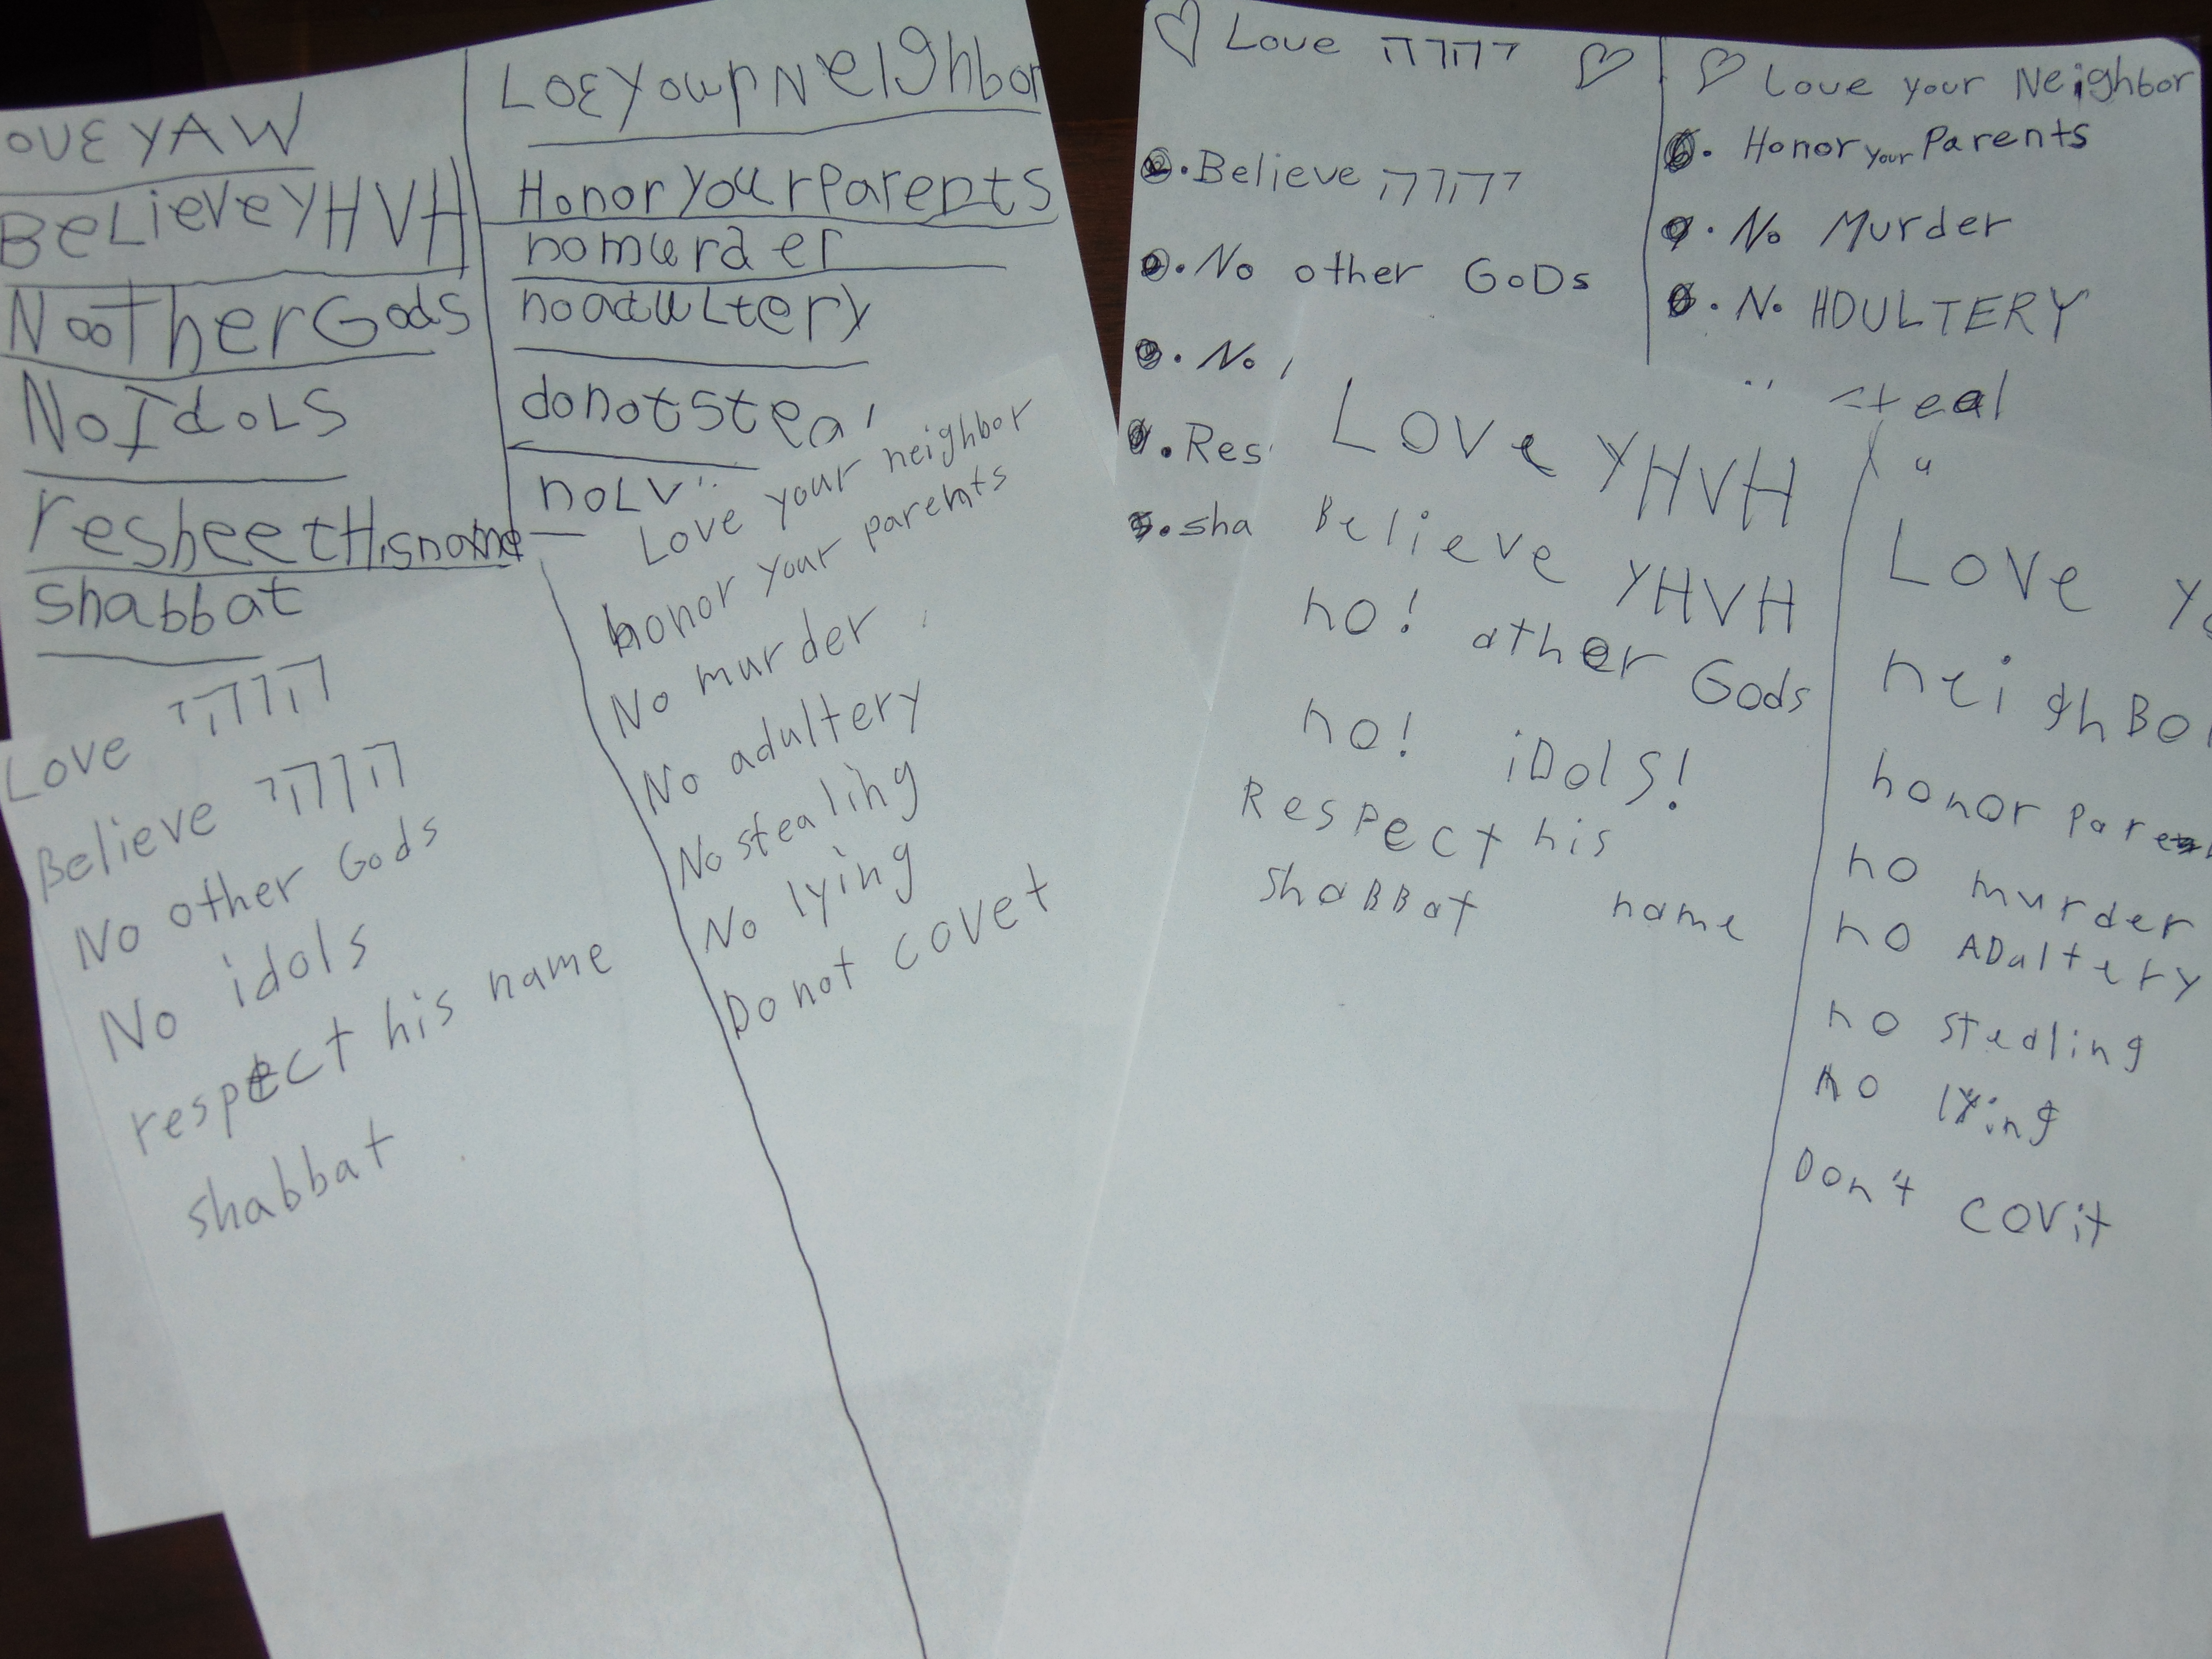 OVE YAW
BeLieve YHVH
No oTher Gods
No IdoLS
resbeet His name
shabbat
LOE Your Neighbor
Honor your Parents
no murder
no aduLtery
do not stea
no L
Love יהוה
Believe יהוה
No other GoDs
No
Res
sha
Love your Neighbor
Honor your Parents
No Murder
No ADULTERY
steal
Love יהוה
Believe יהוה
No other Gods
No idols
respect his name
shabbat
Love your neighbor
honor your parents
No murder
No adultery
No stealing
No lying
Do not covet
Love YHVH
Believe YHVH
no! other Gods
no! iDolS!
Respect his
name
shaBBat
Love Yo
neighBo
honor Paren
no murder
no ADultery
no stealing
no lying
Don't covit